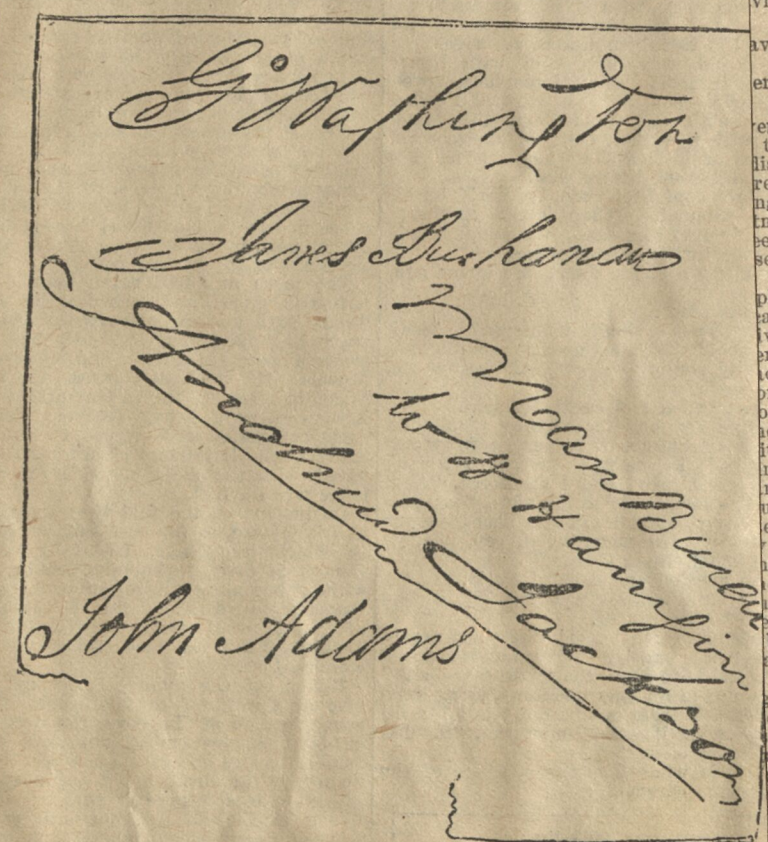 Go Washington
James Buchanan
M Van Buren
W H Harrison
Andrew Jackson
John Adams